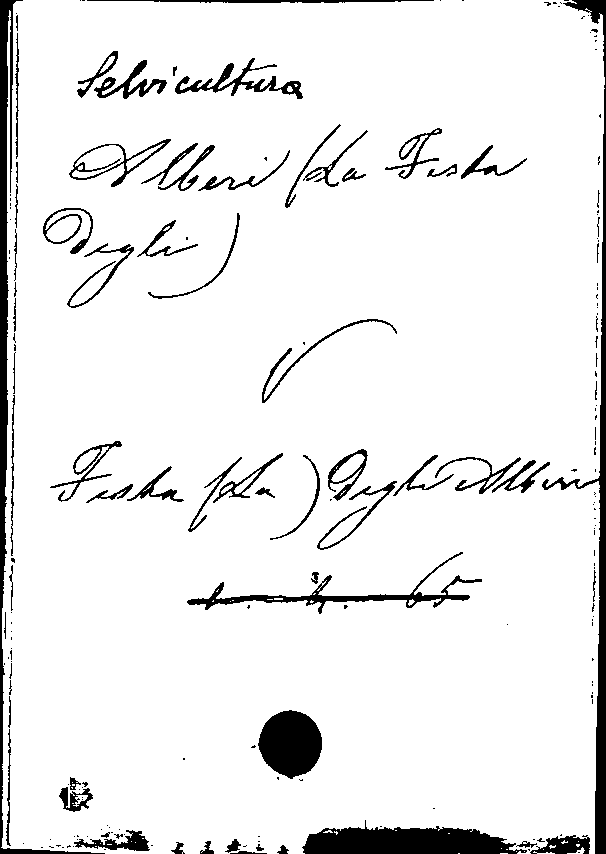 Selvicultura
Alberi (La Festa
Degli)
V
Festa (La) Degli Alberi